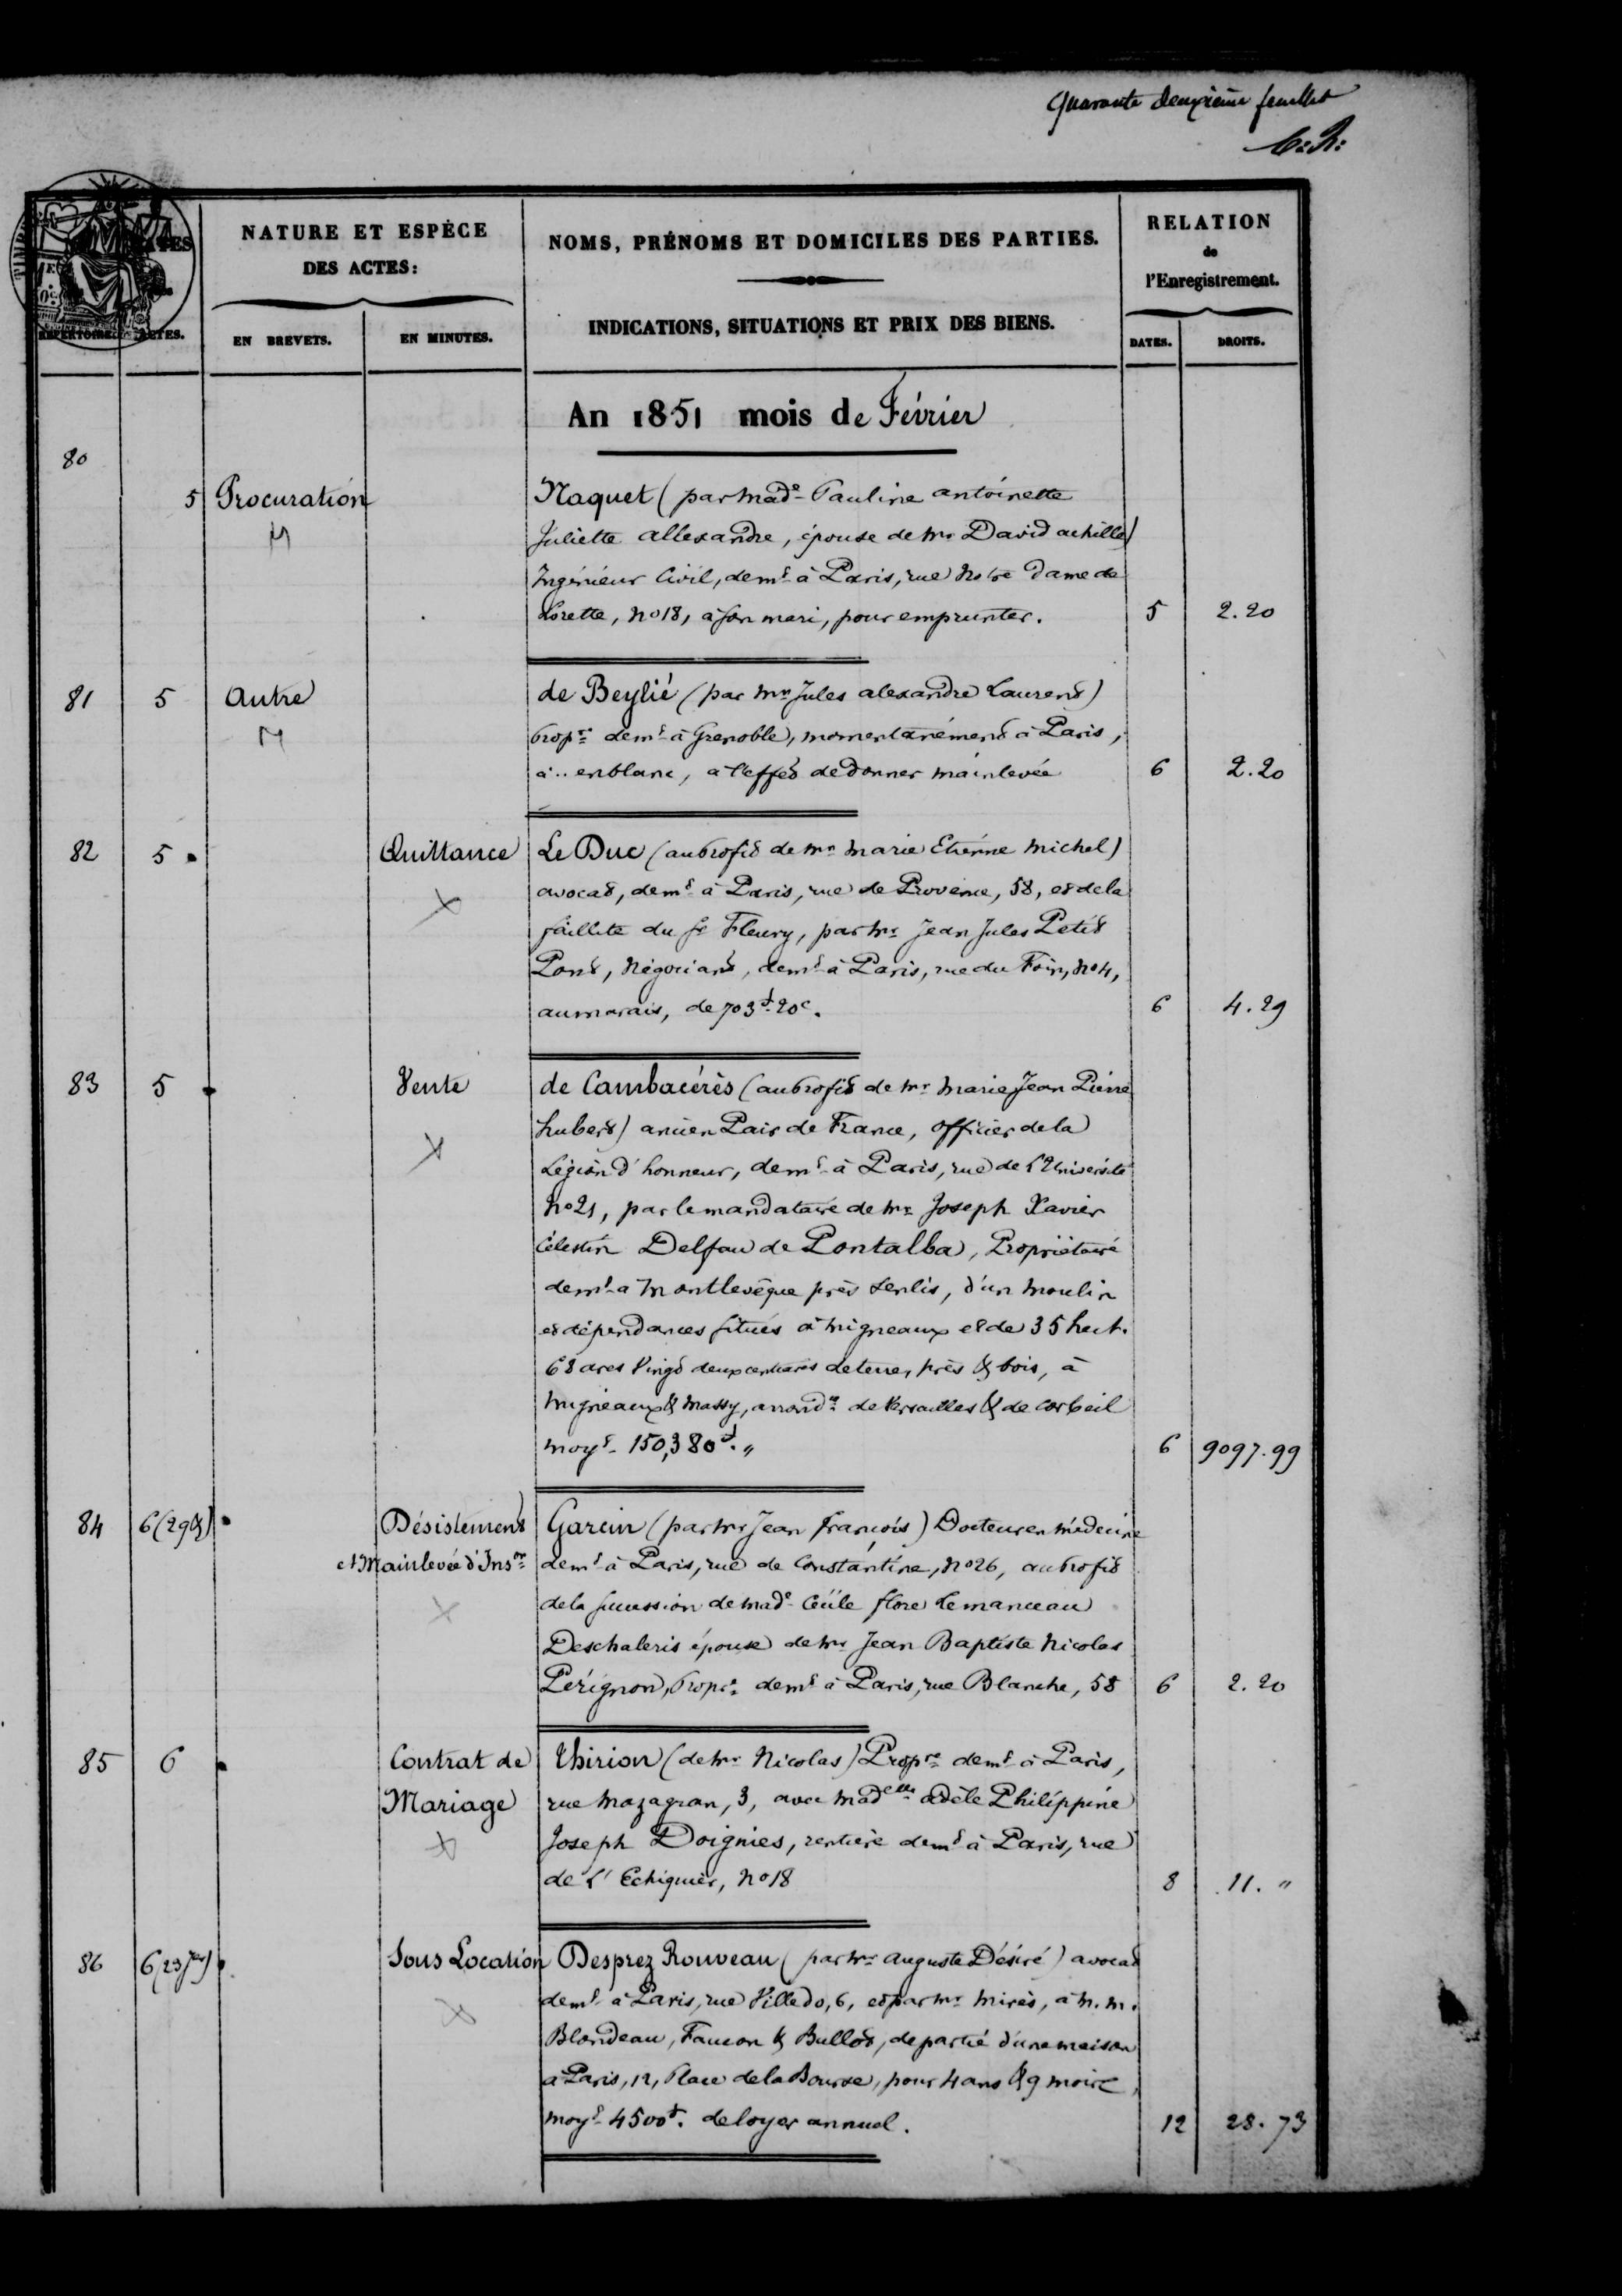 Quarante deuxième feuillet
NATURE ET ESPÈCE
DES ACTES:
EN BREVETS.
EN MINUTES.
NOMS, PRÉNOMS ET DOMICILES DES PARTIES.
INDICATIONS, SITUATIONS ET PRIX DES BIENS.
RELATION
de
l'Enregistrement.
DATES.
DROITS.
RÉPERTOIRE.
ACTES.
An 1851 mois de Février
80
5 Procuration Naquet (par Made Pauline antoinette
Juliette allexandre, épouse de Mr David achille)
Ingénieur Civil, demt à Paris, rue Notre Dame de
Lorette, No 18, à son mari, pour emprunter. 5 2.20
81 5 Autre de Beylié (par Mr Jules alexandre Laurent)
propre demt à Grenoble, momentanément à Paris,
à .. en blanc, à l'effet de donner mainlevée 6 2.20
82 5 Quittance Le Duc (au profit de Mr Marie Etienne Michel)
avocat, demt à Paris, rue de Provence, 58, et de la
faillite du sr Fleury, par Mr Jean Jules Petit
Pont, Négociant, demt à Paris, rue du Foin, No 4,
au marais, de 703f 20c. 6 4.29
83 5 Vente de Cambacérès (au profit de Mr Marie Jean Pierre
hubert) ancien Pair de France, officier de la
Légion d'honneur, demt à Paris, rue de l'Université
No 21, par le mandataire de Mr Joseph Xavier
Célestin Delfau de Pontalba, Propriétaire
demt à Montlevêque près Senlis, d'un Moulin
et dépendances situés à Migneaux et de 35 hect.
68 ares Vingt deux centiares de terre, prés & bois, à
Migneaux & Massy, arrondt de Versailles & de Corbeil
moyt 150,380f. " 6 9097.99
84 6 (29 &) Désistement Garcin (par Mr Jean françois) Docteur en médecine
et Mainlevée d'Inson demt à Paris, rue de Constantine, No 26, au profit
de la succession de made Cécile flore Lemanceau
Deschaleris épouse de Mr Jean Baptiste Nicolas
Pérignon, propre demt à Paris, rue Blanche, 58 6 2.20
85 6 Contrat de Thirion (de Mr Nicolas) Propre demt à Paris,
Mariage rue Mazagran, 3, avec Madelle adèle Philippine
Joseph Doignies, rentière demt à Paris, rue
de l'Echiquier, No 18 8 11. "
86 6 (23 jer) Sous Location Desprez Rouveau (par Mr Auguste Désiré) avocat
demt à Paris, rue Villedo, 6, et par Mr Mirès, à M.M.
Blondeau, Faucon & Bullot, de partie d'une maison
à Paris, 12, Place de la Bourse, pour 4 ans & 9 mois
moyt 4500f. de loyer annuel. 12 28.73